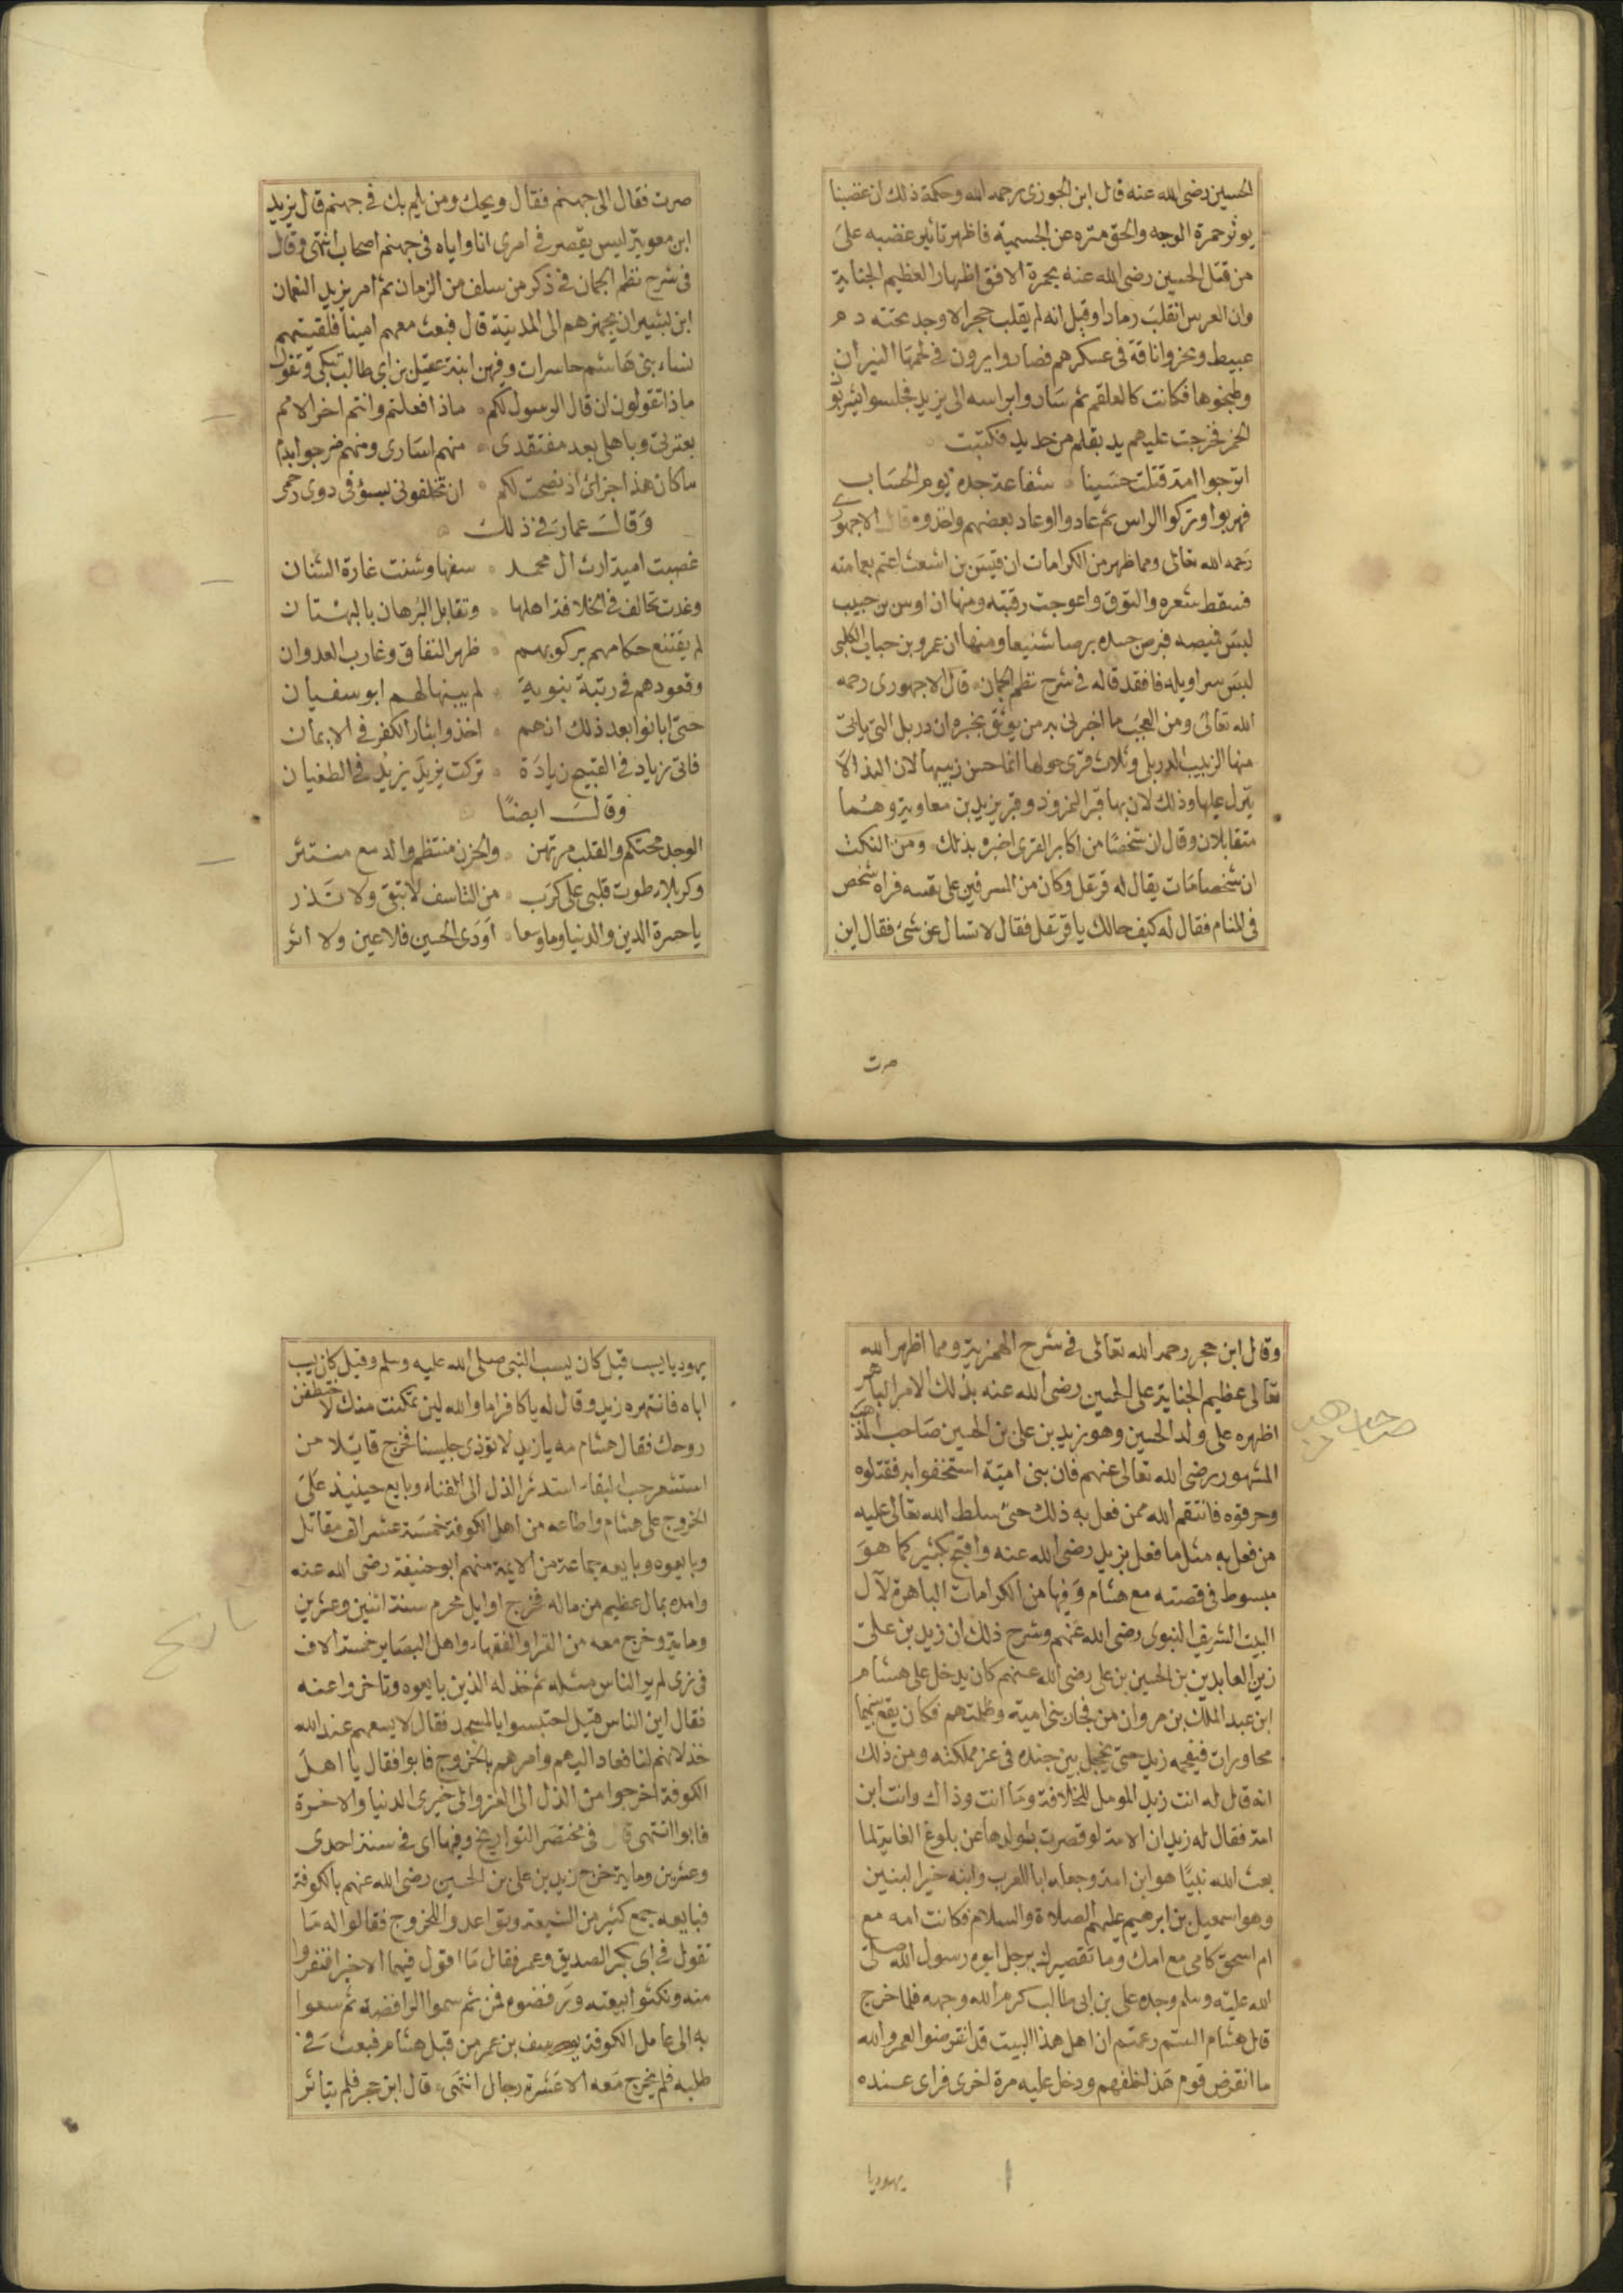 الحسين رضى الله عنه قال ابن الجوزى رحمه الله وحكمة ذلك ان غضبنا
يوثر حمرة الوجه والحق منزه عن الجسمية فاظهر تاثير غضبه على
من قتل الحسين رضى الله عنه بحمرة الافق اظهارا لعظيم الجناية
وان العرس انقلب رمادا وقيل انه لم يقلب حجر الا وجد تحته دم
عبيط ونحروا ناقة فى عسكرهم فصاروا يرون فى لحمها النيران
وطبخوها فكانت كالعلقم ثم ساروا براسه الى يزيد فجلسوا يشربون
الخمر فخرجت عليهم يد بقلم من حديد فكتبت
اترجوا امة قتلت حسينا شفاعة جده يوم الحساب
فهربوا وتركوا الراس ثم عادوا وعاد بعضهم واخذوه قال الاجهورى
رحمه الله تعالى ومما ظهر من الكرامات ان قيس بن اشعث اعتم بعمامته
فسقط شعره والتوق واعوجت رقبته ومنها ان اوس بن حبيب
لبس قميصه فبرص جسده برصا شنيعا ومنها ان عمرو بن حباب الكلبى
لبس سراويله فافقد قاله فى شرح نظم الجمان قال الاجهورى رحمه
الله تعالى ومن العجب ما اخبرنى به من يوثق بخبره ان دربل التى ياتى
منها الزبيب الدربلى وثلاث قرى حولها انما حسن زبيبها لان الندا لا
ينزل عليها وذلك لان بها قبر النمرود وقبر يزيد بن معاوية وهما
متقابلان وقال ان شخصا من اكابر القرى اخبره بذلك ومن النكت
ان شخصا مات يقال له قرتقل وكان من المسرفين على نفسه فراه شخص
فى المنام فقال له كيف حالك يا قرتقل فقال لا تسال عن شئ فقال اين
صرت
صرت فقال الى جهنم فقال ويحك ومن يلم بك فى جهنم قال يزيد
ابن معوية ليس يقصر فى امرى انا واياه فى جهنم اصحاب انتهى وقال
فى شرح نظم الجمان فى ذكر من سلف من الزمان ثم امر يزيد النعمان
ابن بشير ان يجهزهم الى المدينة قال فبعث معهم امينا فلقيتهم
نساء بنى هاشم حاسرات وفيهن ابنة عقيل بن ابى طالب تبكى وتقول
ماذا تقولون ان قال الرسول لكم ماذا فعلتم وانتم اخر الامم
بعترتى وباهلى بعد مفتقدى منهم اسارى ومنهم ضرجوا بدم
ما كان هذا جزائى اذ نصحت لكم ان تخلفونى بسوء فى ذوى رحمى
وقال عمار فى ذلك
غصبت امية ارث ال محمد سفها وشنت غارة الشنان
وغدت تخالف فى الخلافة اهلها وتقابل البرهان بالبهتان
لم يقتنع حكامهم بركوبهم ظهر النفاق وغارب العدوان
وقعودهم فى رتبة نبوية لم يبنها لهم ابو سفيان
حتى ابانوا بعد ذلك انهم اخذوا بثار الكفر فى الايمان
فاتى زياد فى القبيح زيادة تركت يزيد يزيد فى الطغيان
وقال ايضا
الوجد محتكم والقلب مرتهن والحزن منتظم والدمع منتثر
وكربلا طوت قلبى على كرب من التاسف لا تبقى ولا تذر
يا حسرة الدين والدنيا وما وسعا اودى الحسين فلا عين ولا اثر
وقال ابن حجر رحمه الله تعالى فى شرح الهمزية ومما اظهر الله
تعالى عظيم الجناية على الحسين رضى الله عنه بذلك الامر الباهر
اظهره على ولد الحسين وهو زيد بن على بن الحسين صاحب المذهب
المشهور رضى الله تعالى عنهم فان بنى امية استخفوا به فقتلوه
وحرقوه فانتقم الله ممن فعل به ذلك حتى سلط الله تعالى عليه
من فعل به مثل ما فعل بزيد رضى الله عنه واقبح بكثير كما هو
مبسوط فى قصته مع هشام وفيها من الكرامات الباهرة لآل
البيت الشريف النبوى رضى الله عنهم وشرح ذلك ان زيد بن على
زين العابدين بن الحسين بن على رضى الله عنهم كان يدخل على هشام
ابن عبد الملك بن مروان من فجار بنى امية وظلمتهم فكان يقع بينهما
محاورات فيفحمه زيد حتى يخجل بين جنده فى عز مملكته ومن ذلك
انه قال له انت زيد المومل للخلافة وما انت وذاك وانت ابن
امة فقال له زيد ان الامة لو قصرت بولدها عن بلوغ الغاية لما
بعث الله نبيا هو ابن امة وجعله ابا للعرب وابنه خير البنين
وهو اسمعيل بن ابرهيم عليهم الصلاة والسلام فكانت امه مع
ام اسحق كامى مع امك وما تقصيرك برجل ابوه رسول الله صلى
الله عليه وسلم وجده على بن ابى طالب كرم الله وجهه فلما خرج
قال هشام الستم زعمتم ان اهل هذا البيت قد انقرضوا لعمرو الله
ما انقرض قوم هذا خلفهم ودخل عليه مرة اخرى فراى عنده
يهوديا
يهوديا يسب قيل كان يسب النبى صلى الله عليه وسلم وقيل كان يسب
اباه فانتهره زيد وقال له يا كافر اما والله لين تمكنت منك لاختطفن
روحك فقال هشام مه يا زيد لا توذى جليسنا فخرج قايلا من
استشعر حب البقاء استدثر الذل الى الفناء وبايع حينيذ على
الخروج على هشام واطاعه من اهل الكوفة خمسة عشر الف مقاتل
وبايعوه وبايعه جماعة من الايمة منهم ابو حنيفة رضى الله عنه
وامده بمال عظيم من ماله فخرج اوايل محرم سنة اثنين وعشرين
وماية وخرج معه من القرا والفقهاء واهل البصاير خمسة الاف
فى زى لم ير الناس مثله ثم خذله الذين بايعوه وتاخروا عنه
فقال اين الناس قيل احتبسوا بالمسجد فقال لا يسعهم عند الله
خذلانهم لنا فعاد اليهم وامرهم بالخروج فابوا فقال يا اهل
الكوفة اخرجوا من الذل الى العز والى خيرى الدنيا والاخرة
فابوا انتهى قال فى مختصر التواريخ وفيها اى فى سنة احدى
وعشرين وماية خرج زيد بن على بن الحسين رضى الله عنهم بالكوفة
فبايعه جمع كثير من الشيعة وتواعدوا للخروج فقالوا له ما
تقول فى ابى بكر الصديق وعمر فقال ما اقول فيهما الا خيرا فنفروا
منه ونكثوا بيعته ورفضوه فمن ثم سموا الرافضة ثم سعوا
به الى عامل الكوفة يوسف بن عمر من قبل هشام فبعث فى
طلبه فلم يخرج معه الا عشرة رجال انتهى قال ابن حجر فلم يتاثر
تاريخ